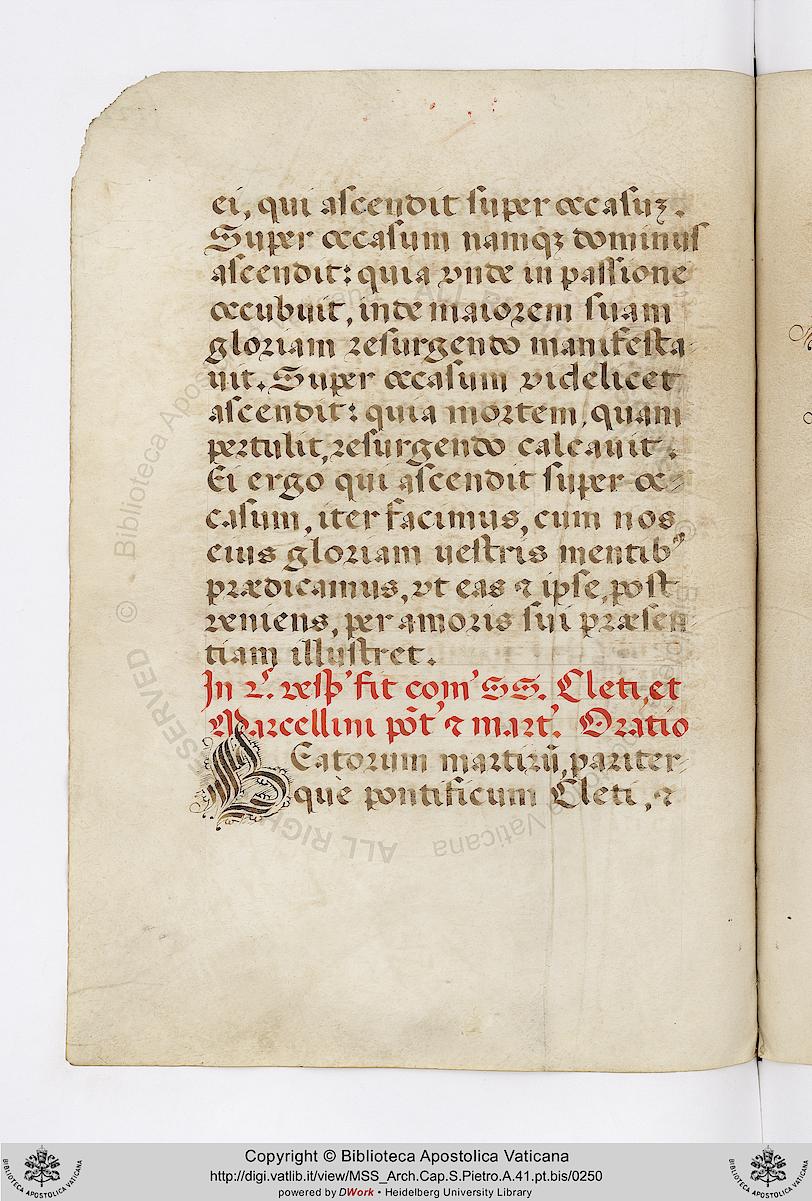 ei, qui ascendit super occasuʒ.
Super occasum namqʒ dominus
ascendit: quia vnde in passione
occubuit, inde maiorem suam
gloriam resurgendo manifesta-
uit. Super occasum videlicet
ascendit: quia mortem, quam
pertulit, resurgendo calcauit.
Ei ergo qui ascendit super oc-
casum, iter facimus, cum nos
eius gloriam uestris mentibꝰ
prædicamus, vt eas ⁊ ipse, post
veniens, per amoris sui præsen
tiam illustret.
In 2.ˢ vesp' fit com' SS. Cleti, et
Marcellini pōt' ⁊ mart'. Oratio
BEatorum martirū pariter-
què pontificum Cleti, ⁊
© Biblioteca Apostolica Vaticana
ALL RIGHTS RESERVED
Copyright © Biblioteca Apostolica Vaticana
http://digi.vatlib.it/view/MSS_Arch.Cap.S.Pietro.A.41.pt.bis/0250
powered by DWork • Heidelberg University Library
BIBLIOTECA APOSTOLICA VATICANA
BIBLIOTECA APOSTOLICA VATICANA